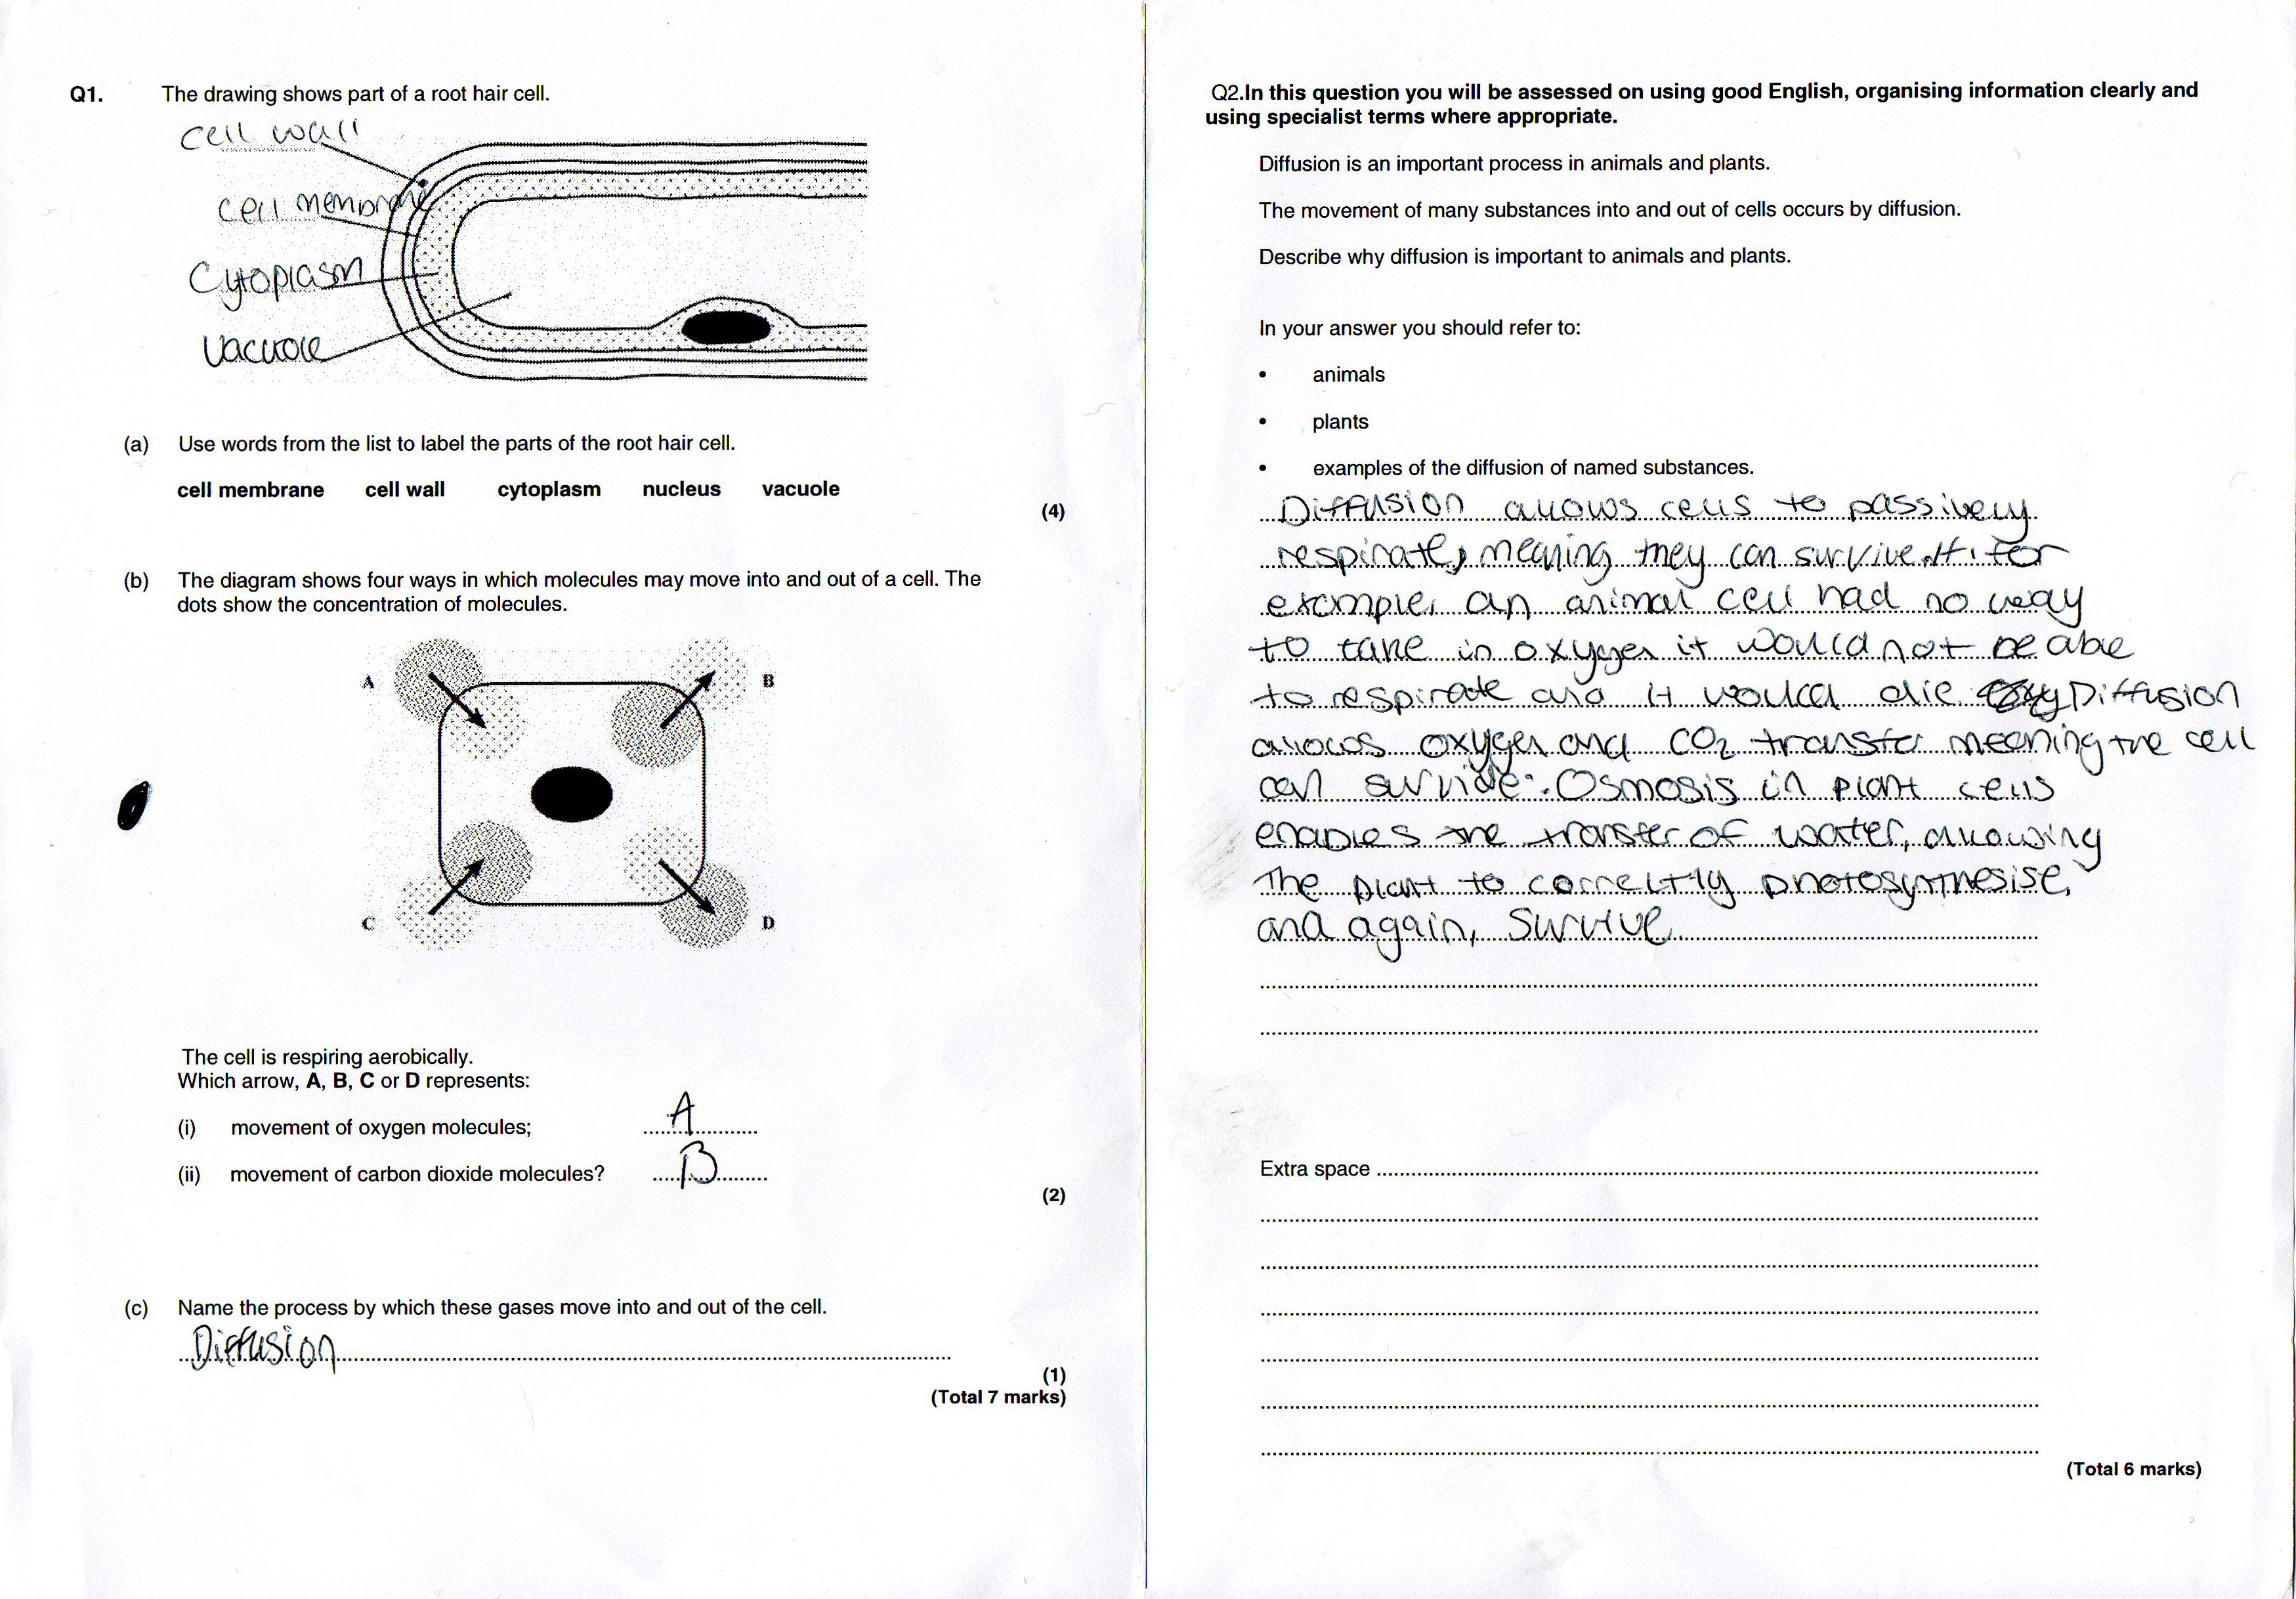 Q1. The drawing shows part of a root hair cell.
cell wall
cell membrane
Cytoplasm
Vacuole
(a) Use words from the list to label the parts of the root hair cell.
cell membrane cell wall cytoplasm nucleus vacuole
(4)
(b) The diagram shows four ways in which molecules may move into and out of a cell. The
dots show the concentration of molecules.
A B
C D
The cell is respiring aerobically.
Which arrow, A, B, C or D represents:
(i) movement of oxygen molecules; A
(ii) movement of carbon dioxide molecules? B
(2)
(c) Name the process by which these gases move into and out of the cell.
Diffusion
(1)
(Total 7 marks)
Q2.In this question you will be assessed on using good English, organising information clearly and
using specialist terms where appropriate.
Diffusion is an important process in animals and plants.
The movement of many substances into and out of cells occurs by diffusion.
Describe why diffusion is important to animals and plants.
In your answer you should refer to:
• animals
• plants
• examples of the diffusion of named substances.
Diffusion allows cells to passively
respirate, meaning they can survive. If, for
example, an animal cell had no way
to take in oxygen it would not be able
to respirate and it would die. Diffusion
allows oxygen and CO2 transfer meaning the cell
can survive. Osmosis in plant cells
enables the transfer of water, allowing
the plant to correctly photosynthesise,
and again, survive.
Extra space
(Total 6 marks)